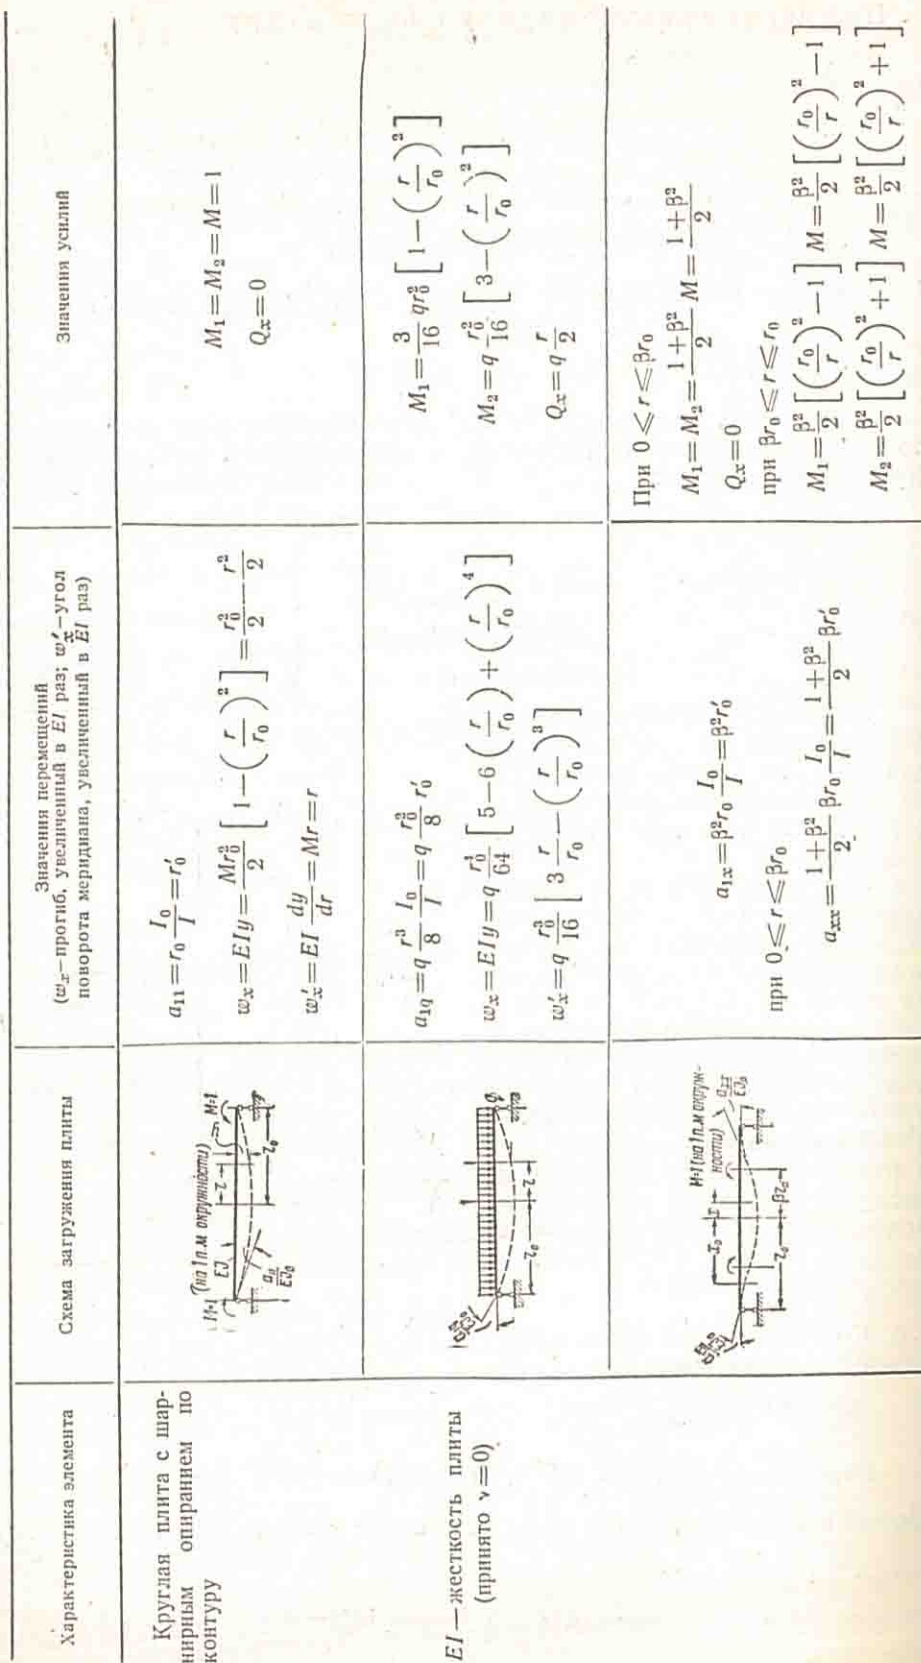 Характеристика элемента
Схема загружения плиты
Значения перемещений
(w_x—прогиб, увеличенный в EI раз; w'_x—угол
поворота меридиана, увеличенный в EI раз)
Значения усилий
Круглая плита с шар-
нирным опиранием по
контуру
EI — жесткость плиты
(принято ν=0)
M=1 (на 1 п.м окружности) M=1
EJ
r
a_11/EJ_0
r_0
a_11 = r_0 I_0/I = r'_0
w_x = EIy = Mr_0^2/2 [1 − (r/r_0)^2] = r_0^2/2 − r^2/2
w'_x = EI dy/dr = Mr = r
M_1 = M_2 = M = 1
Q_x = 0
q
r_0 r
a_1q = q r^3/8 I_0/I = q r_0^2/8 r'_0
w_x = EIy = q r_0^4/64 [5 − 6 (r/r_0) + (r/r_0)^4]
w'_x = q r_0^3/16 [3 r/r_0 − (r/r_0)^3]
M_1 = 3/16 q r_0^2 [1 − (r/r_0)^2]
M_2 = q r_0^2/16 [3 − (r/r_0)^2]
Q_x = q r/2
M=1 (на 1 п.м окруж-
ности)
r_0 βr_0
a_1x = β^2 r_0 I_0/I = β^2 r'_0
при 0 ⩽ r ⩽ βr_0
a_xx = 1+β^2/2 βr_0 I_0/I = 1+β^2/2 βr'_0
При 0 ⩽ r ⩽ βr_0
M_1 = M_2 = 1+β^2/2 M = 1+β^2/2
Q_x = 0
при βr_0 ⩽ r ⩽ r_0
M_1 = β^2/2 [(r_0/r)^2 − 1] M = β^2/2 [(r_0/r)^2 − 1]
M_2 = β^2/2 [(r_0/r)^2 + 1] M = β^2/2 [(r_0/r)^2 + 1]